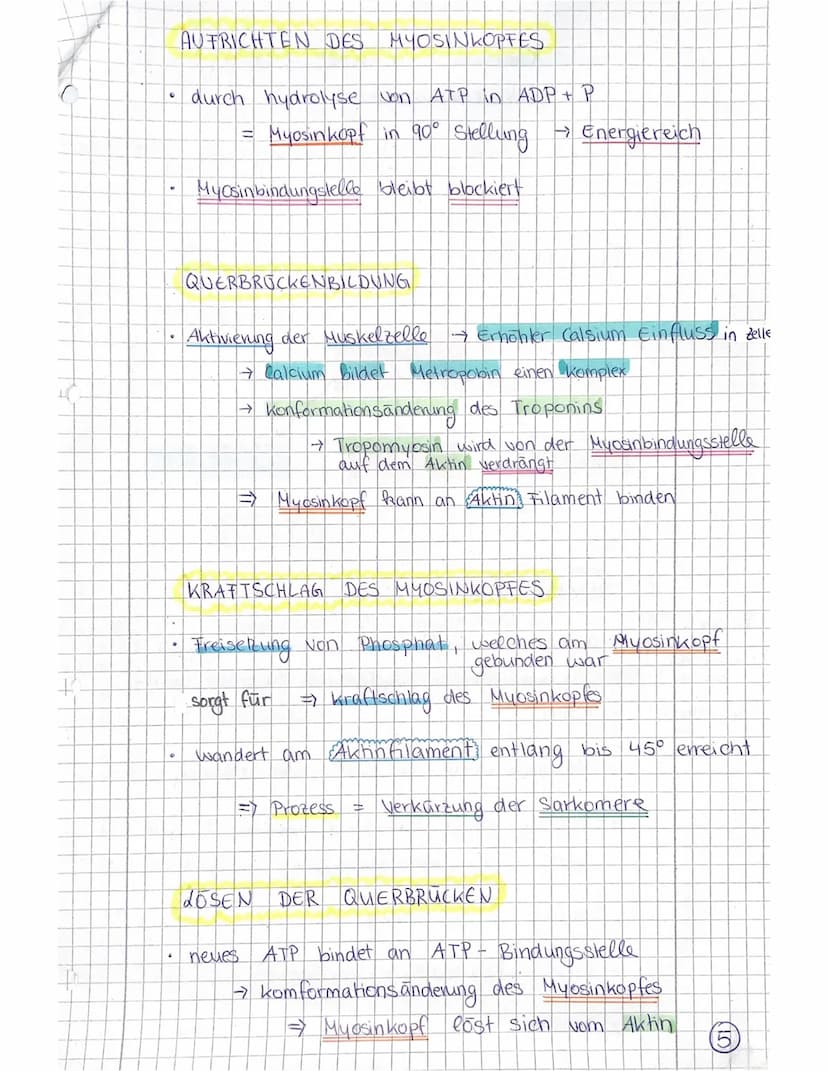 AUFRICHTEN DES MYOSINKOPFES
• durch hydrolyse von ATP in ADP + P
= Myosinkopf in 90° Stellung → Energiereich
• Myosinbindungstelle bleibt blockiert
QUERBRÜCKENBILDUNG
• Aktivierung der Muskelzelle → Erhöhter Calsium Einfluss in Zelle
→ Calcium bildet Metropobin einen Komplex
→ Konformationsänderung des Troponins
→ Tropomyosin wird von der Myosinbindungsstelle
auf dem Aktin verdrängt
⇒ Myosinkopf kann an Aktin Filament binden
KRAFTSCHLAG DES MYOSINKOPFES
• Freisetzung von Phosphat, welches am Myosinkopf
gebunden war
sorgt für ⇒ Kraftschlag des Myosinkopfes
• wandert am Aktinfilament entlang bis 45° erreicht
⇒ Prozess = Verkürzung der Sarkomere
LÖSEN DER QUERBRÜCKEN
• neues ATP bindet an ATP - Bindungsstelle
→ komformationsänderung des Myosinkopfes
⇒ Myosinkopf löst sich vom Aktin
5